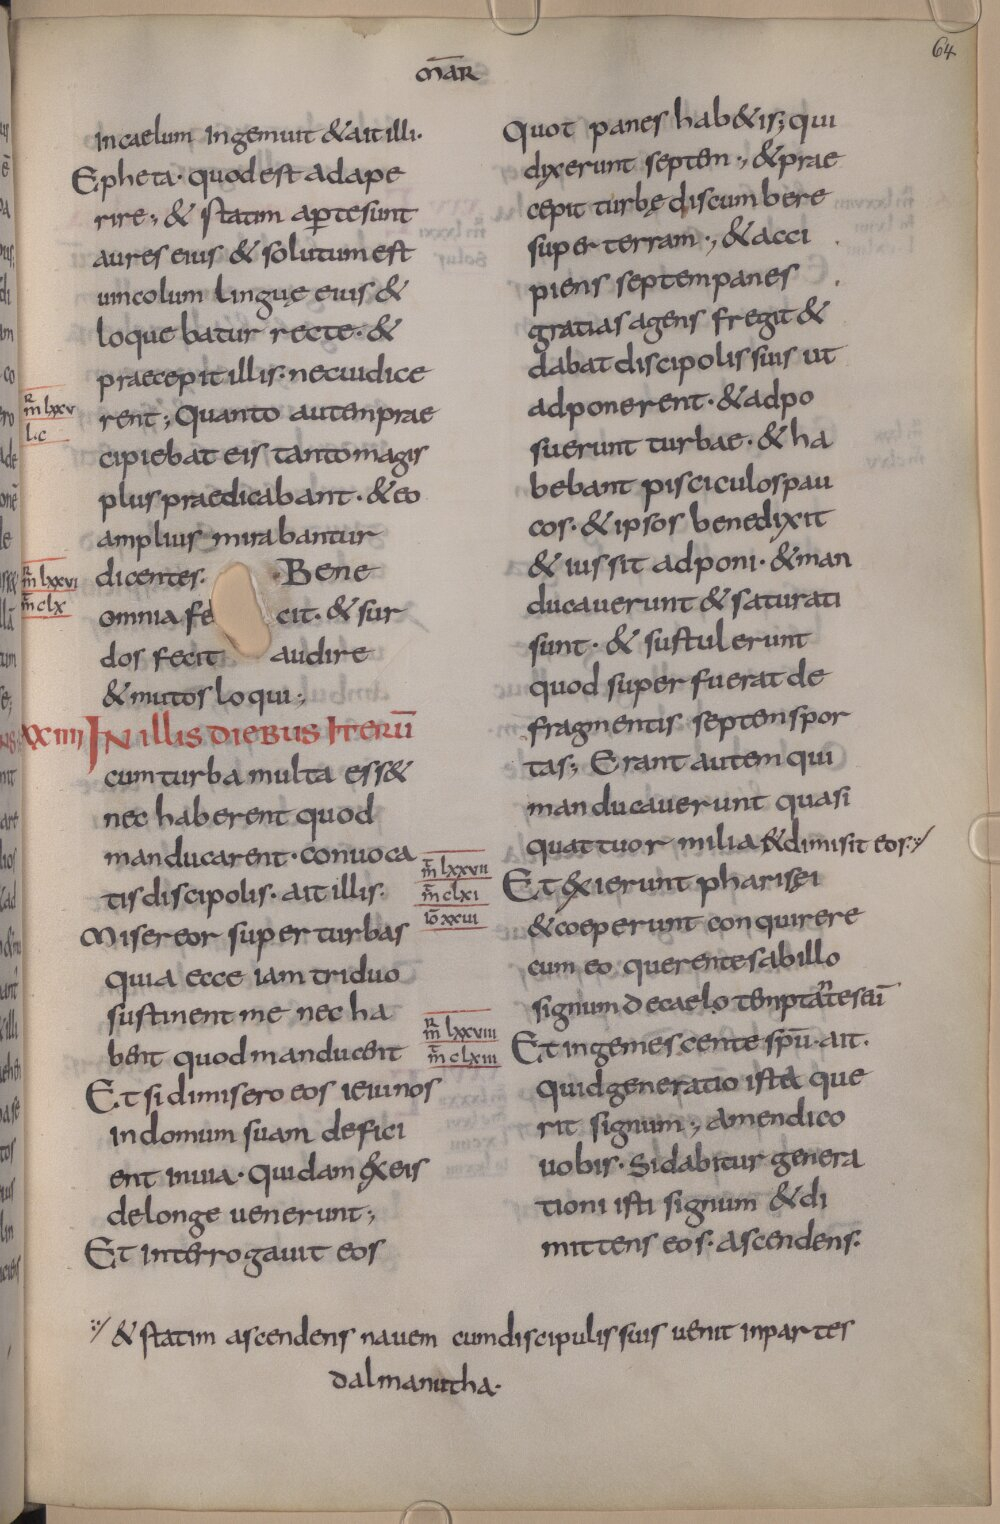 64
m̄aR
incaelum Ingemuit &ait illi·
Epheta· quod est adape
rire·, & statim ap̄tesunt
aures eius & solutum est
uincolum linguę eius &
loquebatur recte· &
praecepit illis· necuidice
rent; Quanto autemprae
cipiebat eis tantomagis
pluspraedicabant· &eo
amplius mirabantur
dicentes· ·Bene
omnia fe cit· & sur
dos fecit audire
& mutos loqui·,
XXIIII IN illis diebus Iterū
cumturba multa ess&
nec haberent quod
manducarent· convoca
tisdiscipolis· ait illis·
Misereor super turbas
Quia ecce iam triduo
sustinent me nec ha
bent quod manducent
Et si dimisero eos ieiunos
in domum suam defici
ent inuia· Quidam exeis
delonge uenerunt·,
Et interrogauit eos
m̄ lxxv
l·c
m̄ lxxvi
m̄ clx
Quot panes hab&is; qui
dixerunt septem·, &prae
cepit turbę discumbere
super terram·, &acci
piens septempanes
gratias agens fregit &
dabat discipolis suis ut
adponerent· &adpo
suerunt turbae· & ha
bebant pisciculospau
cos· &ipsos benedixit
& iussit adponi· &man
ducauerunt & saturati
sunt· & sustulerunt
quod super fuerat de
fragmentis septemspor
tas·, Erant autem qui
manducauerunt quasi
quattuor milia &dimisit eos·
Et exierunt pharisęi
&coeperunt conquirere
cum eo querentesabillo
signum decaelo temptāteseū
Et ingemescente spū· ait·
Quidgeneratio ista que
rit signum·, Amendico
uobis· Sidabitur genera
tioni isti signum &di
mittens eos· ascendens·
m̄ lxxvii
m̄ clxi
iō xxiii
m̄ lxxviii
m̄ clxiii
& statim ascendens nauem cumdiscipulissuis uenit inpartes
dalmanutha·